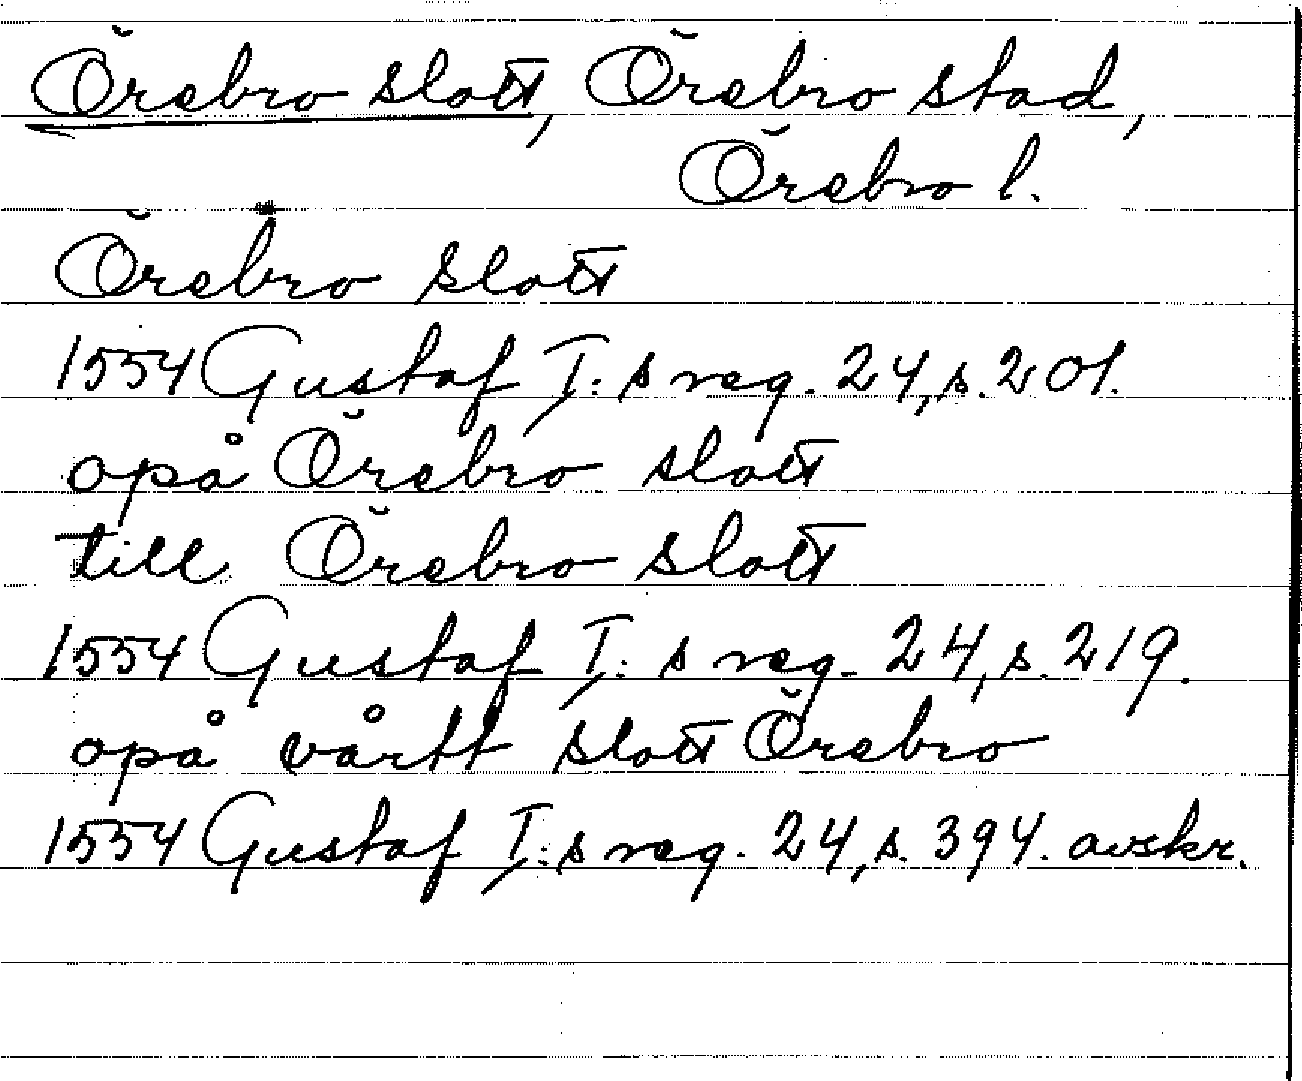 Örebro slott, Örebro stad,
Örebro l.
Örebro slott
1554 Gustaf I:s reg. 24, s. 201.
opå Örebro slott
till Örebro slott
1554 Gustaf I:s reg. 24, s. 219.
opå vårtt slott Örebro
1554 Gustaf I:s reg. 24, s. 394. avskr.